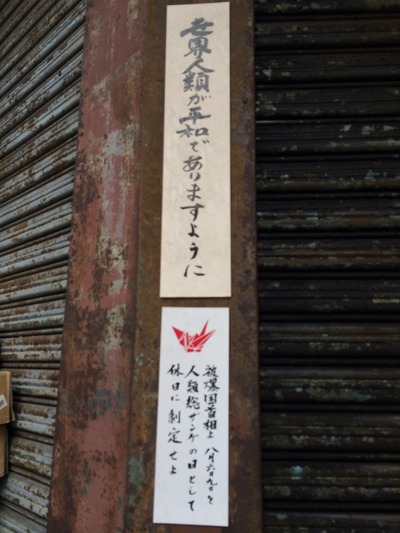 世界人類が平和でありますように
被爆国首相よ 八月六日九日を
人類総ザンゲの日として
休日に制定せよ